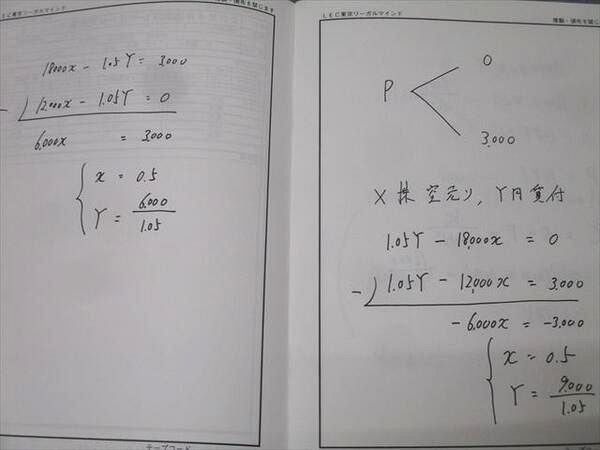 LEC東京リーガルマインド
複製・頒布を禁じます
18000x - 1.05Y = 3.000
- ) 12.000x - 1.05Y = 0
6.000x = 3.000
x = 0.5
Y = 6.000 / 1.05
テープコード
LEC東京リーガルマインド
複製・頒布を禁じ
P
0
3.000
X 株 空売り, Y円貸付
1.05Y - 18,000x = 0
- ) 1.05Y - 12,000x = 3.000
- 6.000x = -3.000
x = 0.5
Y = 9.000 / 1.05